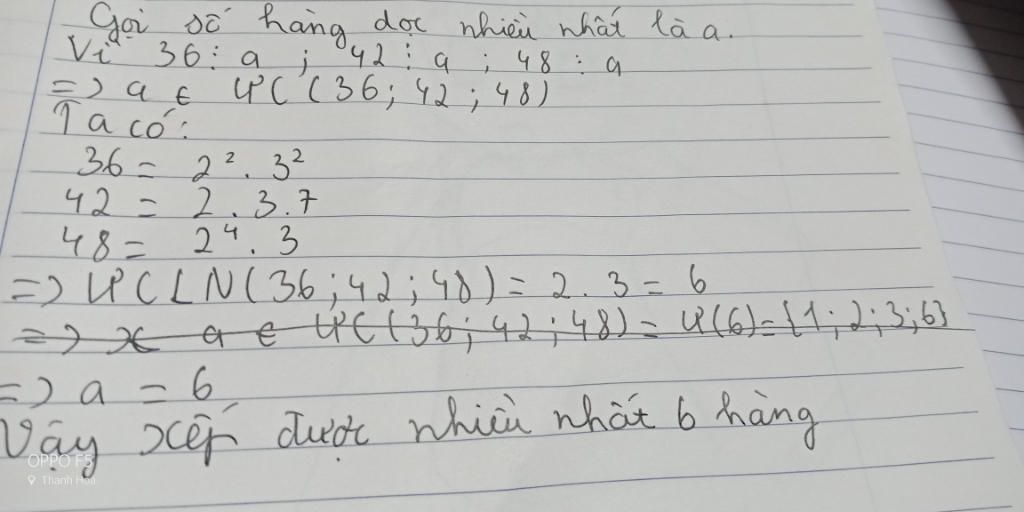 Gọi số hàng dọc nhiều nhất là a.
Vì 36 ⋮ a ; 42 ⋮ a ; 48 ⋮ a
=> a ∈ ƯC (36; 42 ; 48)
Ta có:
36 = 2² . 3²
42 = 2 . 3 . 7
48 = 2⁴ . 3
=> ƯCLN(36;42;48) = 2 . 3 = 6
=> x a ∈ ƯC(36; 42; 48) = Ư(6) = {1; 2; 3; 6}
=> a = 6
Vậy xếp được nhiều nhất 6 hàng
OPPO F5
Thanh Hóa